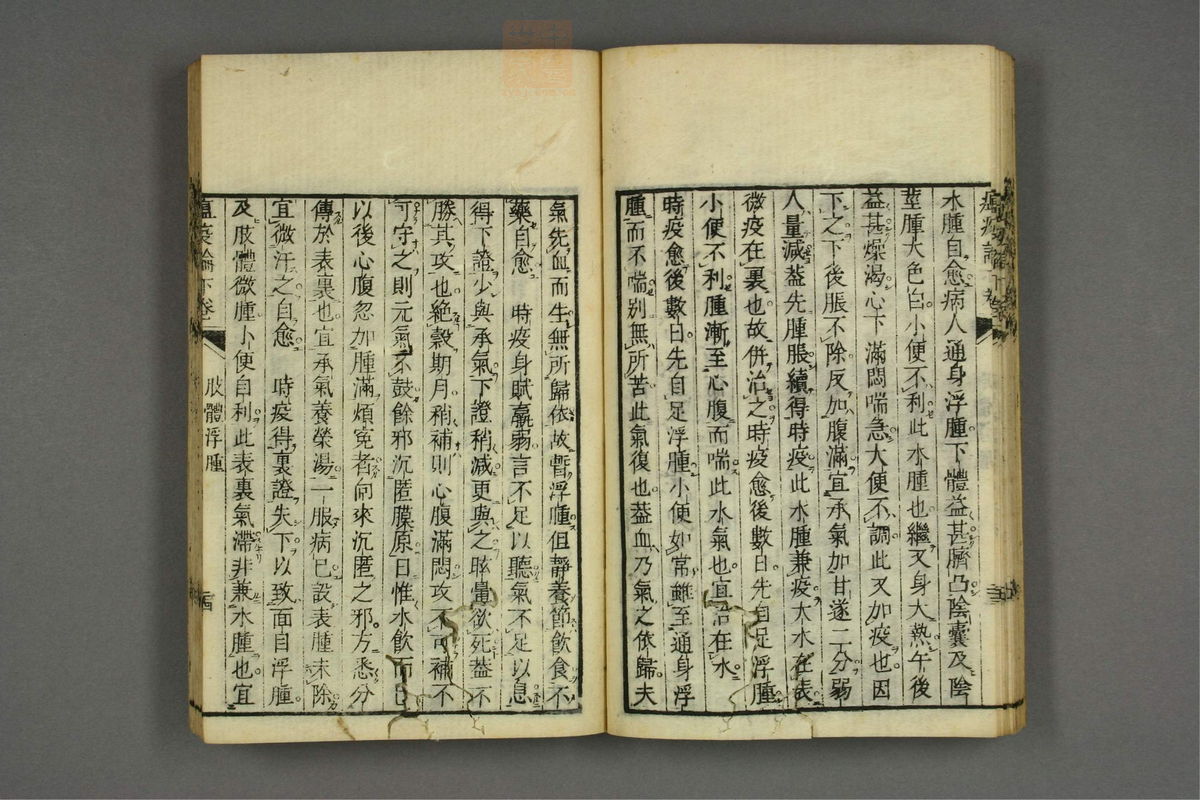 水腫自愈病人通身浮腫下體益甚臍凸陰囊及陰
莖腫大色白小便不利此水腫也繼又身大熱午後
益甚燥渴心下滿悶喘急大便不調此又加疫也因
下之下後脹不除反加腹滿宜承氣加甘遂二分弱
人量減葢先腫脹續得時疫此水腫兼疫大水在表
微疫在裏也故併治之時疫愈後數日先自足浮腫
小便不利腫漸至心腹而喘此水氣也宜治在水
時疫愈後數日先自足浮腫小便如常雖至通身浮
腫而不喘别無所苦此氣復也葢血乃氣之依歸夫
氣先血而生無所歸依故暫浮腫但靜養節飲食不
藥自愈 時疫身賦羸弱言不足以聽氣不足以息
得下證少與承氣下證稍減更與之眩暈欲死葢不
勝其攻也絶穀期月稍補則心腹滿悶攻不可補不
可守之則元氣不鼓餘邪沉匿膜原日惟水飲而已
以後心腹忽加腫滿煩冤者向來沉匿之邪方悉分
傳於表裏也宜承氣養榮湯一服病已設表腫未除
宜微汗之自愈 時疫得裏證失下以致面目浮腫
及肢體微腫小便自利此表裏氣滯非兼水腫也宜
瘟疫論下卷 肢體浮腫